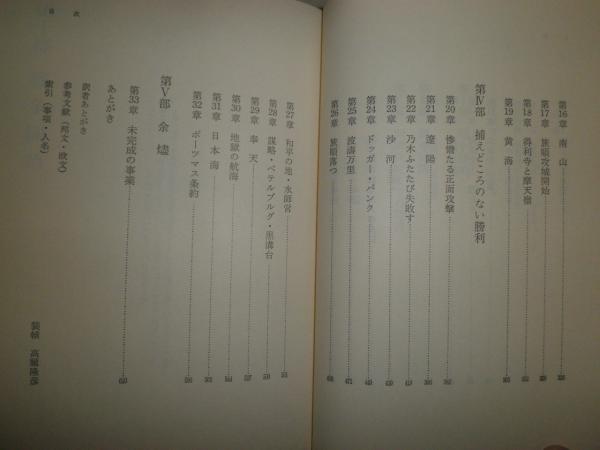 第16章 南山
第17章 旅順攻城開始
第18章 得利寺と摩天嶺
第19章 黄海
第Ⅳ部 捕えどころのない勝利
第20章 惨憺たる正面攻撃
第21章 遼陽
第22章 乃木ふたたび失敗す
第23章 沙河
第24章 ドッガー・バンク
第25章 波濤万里
第26章 旅順落つ
目次
第27章 和平の地・水師営
第28章 謀略・ペテルブルグ・黒溝台
第29章 奉天
第30章 地獄の航海
第31章 日本海
第32章 ポーツマス条約
第Ⅴ部 余燼
第33章 未完成の事業
あとがき
訳者あとがき
参考文献（邦文・欧文）
索引（事項・人名）
装幀 高麗隆彦